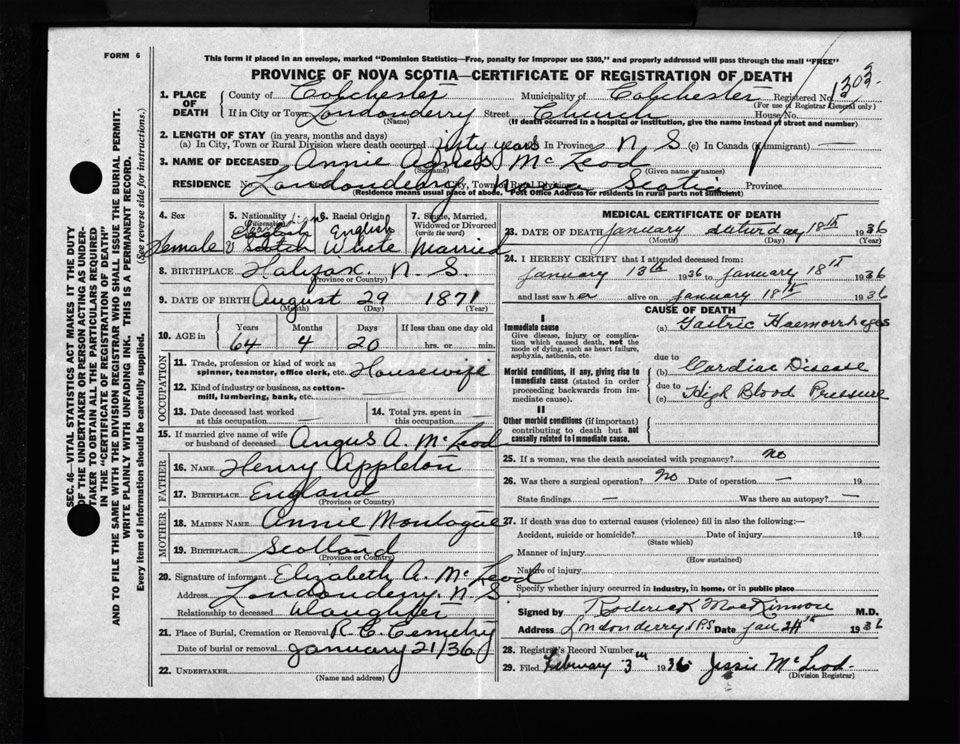 FORM 6
This form if placed in an envelope, marked "Dominion Statistics—Free, penalty for improper use $300," and properly addressed will pass through the mail "FREE"
PROVINCE OF NOVA SCOTIA—CERTIFICATE OF REGISTRATION OF DEATH
SEC. 46—VITAL STATISTICS ACT MAKES IT THE DUTY
OF THE UNDERTAKER OR PERSON ACTING AS UNDER-
TAKER TO OBTAIN ALL THE PARTICULARS REQUIRED
IN THE "CERTIFICATE OF REGISTRATION OF DEATH"
AND TO FILE THE SAME WITH THE DIVISION REGISTRAR WHO SHALL ISSUE THE BURIAL PERMIT.
WRITE PLAINLY WITH UNFADING INK. THIS IS A PERMANENT RECORD.
Every item of Information should be carefully supplied. (See reverse side for instructions.)
1. PLACE OF DEATH
County of Colchester Municipality of Colchester Registered No.
(For use of Registrar General only)
If in City or Town Londonderry Street Church House No.
(Name) (If death occurred in a hospital or institution, give the name instead of street and number)
2. LENGTH OF STAY (in years, months and days)
(a) In City, Town or Rural Division where death occurred years In Province N. S. (c) In Canada (if immigrant) —
3. NAME OF DECEASED Annie Agnes McLeod
(Surname) (Given name or names)
RESIDENCE No. Londonderry Nova Scotia City, Town or Rural Division Province
(Residence means usual place of abode. Post Office Address for residents in rural parts not sufficient)
4. Sex 5. Nationality (Citizenship) 6. Racial Origin 7. Single, Married, Widowed or Divorced (write the word)
Female Scotch English White Married
8. BIRTHPLACE Halifax. N. S.
(Province or Country)
9. DATE OF BIRTH August 29 1871
(Month) (Day) (Year)
10. AGE in Years Months Days If less than one day old
64 4 20 hrs. or min.
OCCUPATION
11. Trade, profession or kind of work as
spinner, teamster, office clerk, etc. Housewife
12. Kind of industry or business, as cotton-
mill, lumbering, bank, etc. —
13. Date deceased last worked
at this occupation
14. Total yrs. spent in
this occupation —
15. If married give name of wife
or husband of deceased Angus A. McLeod
FATHER
16. NAME Henry Appleton
17. BIRTHPLACE England
(Province or Country)
MOTHER
18. MAIDEN NAME Annie Montague
19. BIRTHPLACE Scotland
(Province or Country)
20. Signature of informant Elizabeth A. McLeod
Address Londonderry. N. S.
Relationship to deceased Daughter
21. Place of Burial, Cremation or Removal R. C. Cemetry
Date of burial or removal January 21/36
22. UNDERTAKER
(Name and address)
MEDICAL CERTIFICATE OF DEATH
23. DATE OF DEATH January Saturday 18th 1936
(Month) (Day) (Year)
24. I HEREBY CERTIFY that I attended deceased from:
January 13th 1936 to January 18th 1936
and last saw her alive on January 18th 1936
CAUSE OF DEATH
I
Immediate cause
Give disease, injury or complica-
tion which caused death, not the
mode of dying, such as heart failure,
asphyxia, asthenia, etc.
(a) Gastric Haemorrhages
due to
Morbid conditions, if any, giving rise to
immediate cause (stated in order
proceeding backwards from im-
mediate cause).
(b) Cardiac Disease
due to
(c) High Blood Pressure
II
Other morbid conditions (if important)
contributing to death but not
causally related to immediate cause.
25. If a woman, was the death associated with pregnancy? No
26. Was there a surgical operation? No Date of operation — 19
State findings — Was there an autopsy? —
27. If death was due to external causes (violence) fill in also the following:—
Accident, suicide or homicide? Date of injury 19
(State which)
Manner of injury
(How sustained)
Nature of injury
Specify whether injury occurred in industry, in home, or in public place
Signed by Roderick MacKinnon M.D.
Address Londonderry NS Date Jan 1936
28. Registrar's Record Number
29. Filed February 3rd 1936 Jessie McLeod.
(Division Registrar)